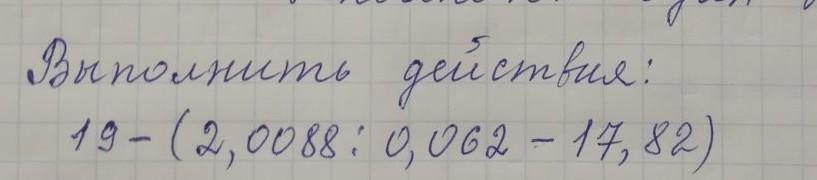 Выполнить действия:
19 - (2,0088 : 0,062 - 17,82)